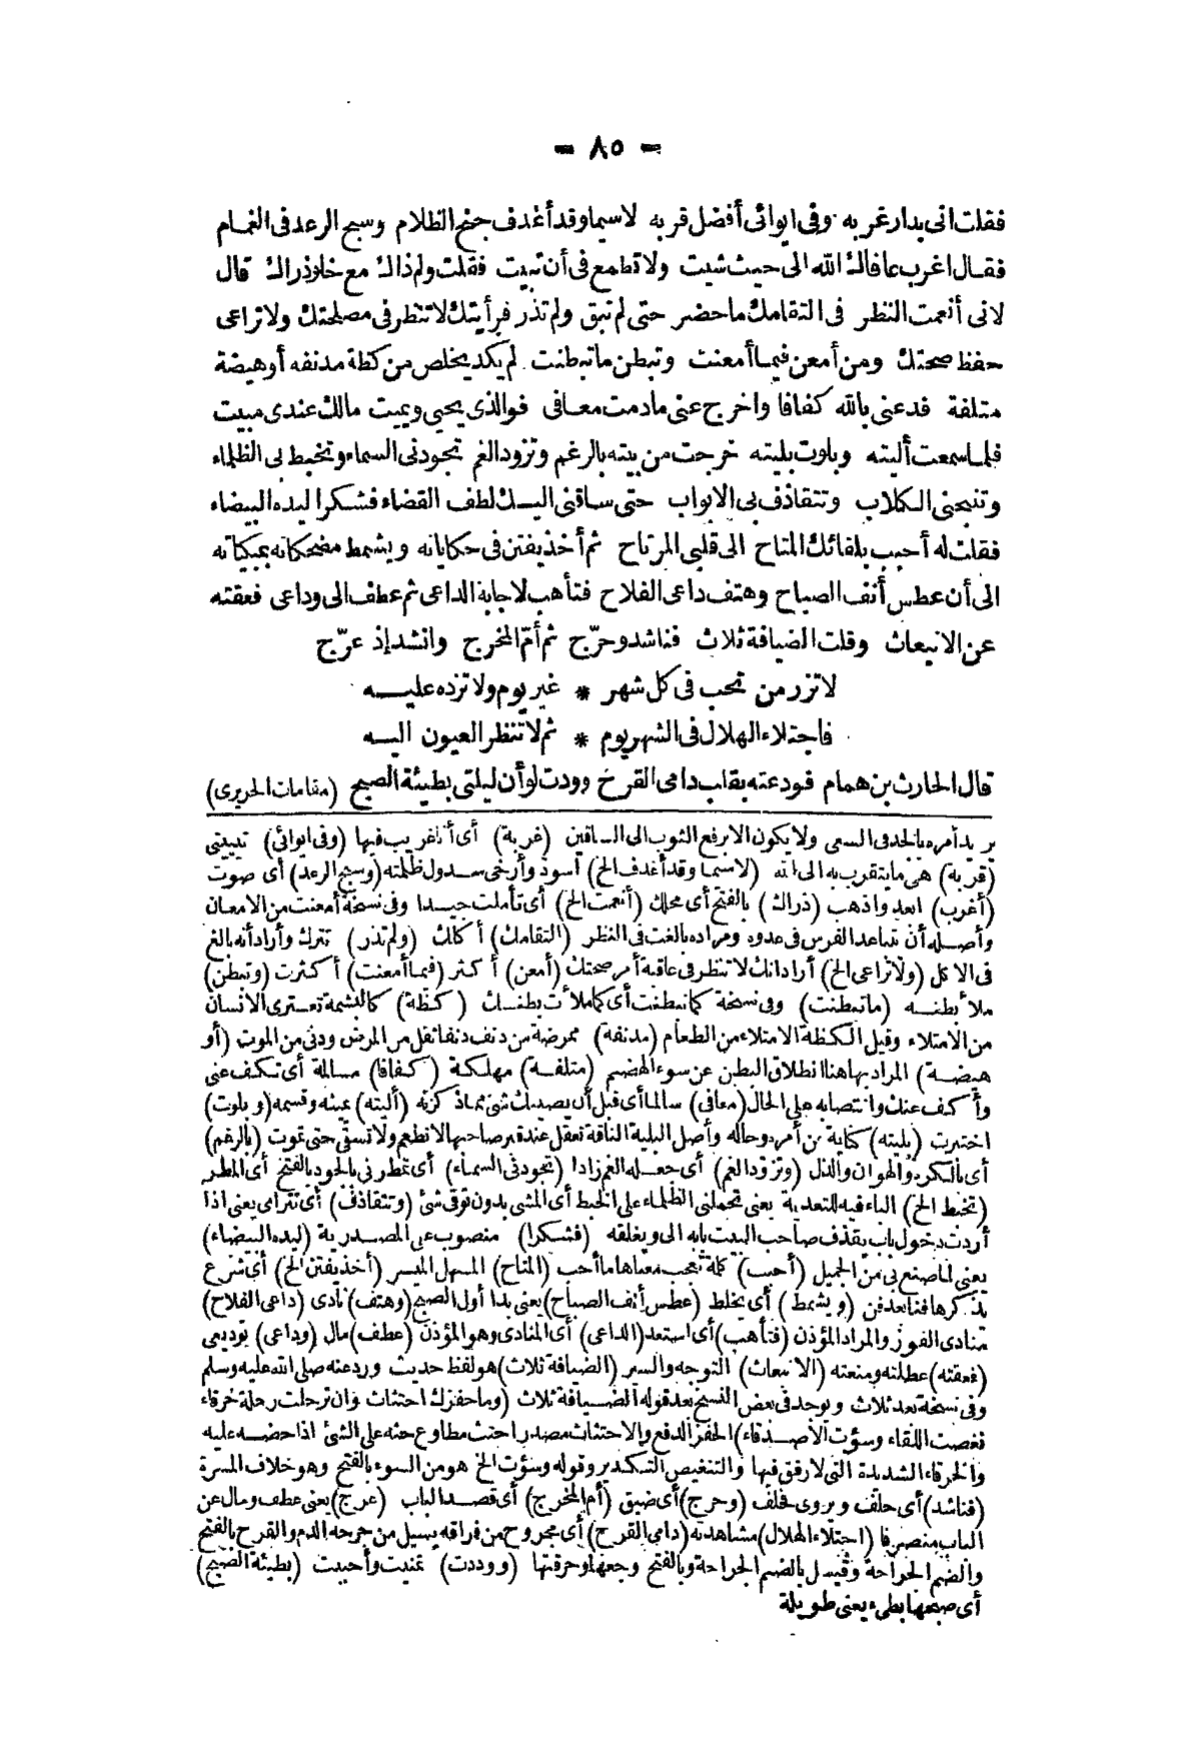 – ٨٥ –
فقلت انى بدار غربه وفى ايوائى أفضل قربه لاسيما وقد أغدف جنح الظلام وسبح الرعد فى الغمام
فقال اغرب عافاك الله الى حيث شيت ولا تطمع فى أن تبيت فقلت ولم ذاك مع خلو ذراك قال
لانى أنعمت النظر فى التقامك ما حضر حتى لم تبق ولم تذر فرأيتك لا تنظر فى مصلحتك ولا تراعى
حفظ صحتك ومن أمعن فيما أمعنت وتبطن ما تبطنت لم يكد يخلص من كظة مدنفه أو هيضة
متلفة فدعنى بالله كفافا واخرج عنى مادمت معافى فوالذى يحيى ويميت مالك عندى مبيت
فلما سمعت أليته وبلوت بليته خرجت من بيته بالرغم وتزود الغم تجودنى السماء وتخبط بى الظلماء
وتنبحنى الكلاب وتتقاذف بى الابواب حتى ساقنى اليك لطف القضاء فشكرا ليده البيضاء
فقلت له أحبب بلقائك المتاح الى قلبى المرتاح ثم أخذ يفتن فى حكاياته ويشمط مضحكاته بمبكياته
الى أن عطس أنف الصباح وهتف داعى الفلاح فتأهب لاجابة الداعى ثم عطف الى وداعى فعقته
عن الانبعاث وقلت الضيافة ثلاث فناشد وحرّج ثم أمّ المخرج وانشد إذ عرّج
لا تزر من تحب فى كل شهر * غير يوم ولا تزده عليـــه
فاجتلاء الهلال فى الشهر يوم * ثم لا تنظر العيون اليـــه
قال الحارث بن همام فودعته بقلب دامى القرح وودت لو أن ليلتى بطيئة الصبح (مقامات الحريرى)
يريد أمره بالجد فى السعى ولا يكون الا برفع الثوب الى الساقين (غربة) أى أنا غريب فيها (وفى ايوائى) تبييتى
(قربة) هى ما يتقرب به الى الله (لاسيما وقد أغدف الخ) أسود وأرخى سدول ظلمته (وسبح الرعد) أى صوت
(أغرب) ابعد واذهب (ذراك) بالفتح أى محلك (أنعمت الخ) أى تأملت جيدا وفى نسخة أمعنت من الامعان
وأصله أن تباعد الفرس فى عدوه ومراده بالغت فى النظر (التقامك) أكلك (ولم تذر) تترك وأراد أنه بالغ
فى الاكل (ولا تراعى الخ) أراد انك لا تنظر فى عاقبة أمر صحتك (أمعن) أكثر (فيما أمعنت) أكثرت (وتبطن)
ملأ بطنه (ما تبطنت) وفى نسخة كما تبطنت أى كما ملأت بطنك (كظة) كالبشمة تعترى الانسان
من الامتلاء وقيل الكظة الامتلاء من الطعام (مدنفة) ممرضة من دنف دنفا ثقل من المرض ودنى من الموت (أو
هيضة) المراد بها هنا انطلاق البطن عن سوء الهضم (متلفة) مهلكة (كفافا) مسالمة أى تكف عنى
وأكف عنك وانتصابه على الحال (معافى) سالما أى قبل أن يصيبك شئ مما ذكرته (أليته) يمينه وقسمه (وبلوت)
اختبرت (بليته) كناية عن أمره وحاله وأصل البلية الناقة تعقل عند قبر صاحبها لا تطعم ولا تسقى حتى تموت (بالرغم)
أى بالكره والهوان والذل (وتزود الغم) أى جعله الغم زادا (تجودنى السماء) أى تمطرنى بالجود بالفتح أى المطر
(تخبط الخ) الباء فيه للتعدية يعنى تحملنى الظلماء على الخبط أى المشى بدون توقى شئ (وتتقاذف) أى تترامى يعنى اذا
أردت دخول باب يقذف صاحب البيت بابه الى ويغلقه (فشكرا) منصوب على المصدرية (ليده البيضاء)
يعنى لما صنع بى من الجميل (أحبب) كلمة تعجب معناها ما أحب (المتاح) المسهل الميسر (أخذ يفتن الخ) أى شرع
يذكرها فنا بعد فن (ويشمط) أى يخلط (عطس أنف الصباح) يعنى بدا أول الصبح (وهتف) نادى (داعى الفلاح)
منادى الفوز والمراد المؤذن (فتأهب) أى استعد (الداعى) أى المنادى وهو المؤذن (عطف) مال (وداعى) توديعى
(فعقته) عطلته ومنعته (الانبعاث) التوجه والسير (الضيافة ثلاث) هو لفظ حديث ورد عنه صلى الله عليه وسلم
وفى نسخة بعد ثلاث ويوجد فى بعض النسخ بعد قوله الضيافة ثلاث (وما حفزك احتثاث وان ترحلت رحلة خرقاء
نغصت اللقاء وسؤت الأصدقاء) الحفز الدفع والاحتثاث مصدر احتث مطاوع حثه على الشئ اذا حضه عليه
والخرقاء الشديدة التى لا رفق فيها والتنغيص التكدير وقوله وسؤت الخ هو من السوء بالفتح وهو خلاف المسرة
(فناشد) أى حلف ويروى فحلف (وحرج) أى ضيق (أم المخرج) أى قصد الباب (عرج) يعنى عطف ومال عن
الباب منصرفا (اجتلاء الهلال) مشاهدته (دامى القرح) أى مجروح من فراقه يسيل من جرحه الدم والقرح بالفتح
والضم الجراحة وقيل بالضم الجراحة وبالفتح وجعها وحرقتها (ووددت) تمنيت وأحببت (بطيئة الصبح)
أى صبحها بطىء يعنى طويلة